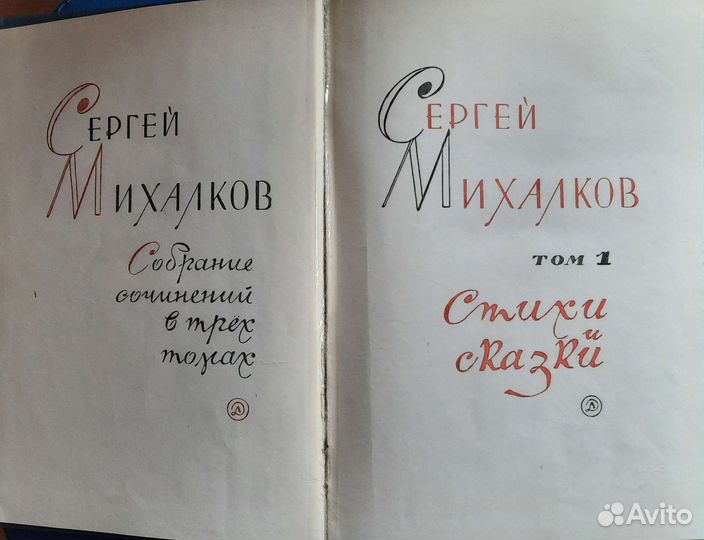 Сергей
Михалков
Собрание
сочинений
в трёх
томах
Д
Сергей
Михалков
том 1
Стихи
и
сказки
Д
Avito